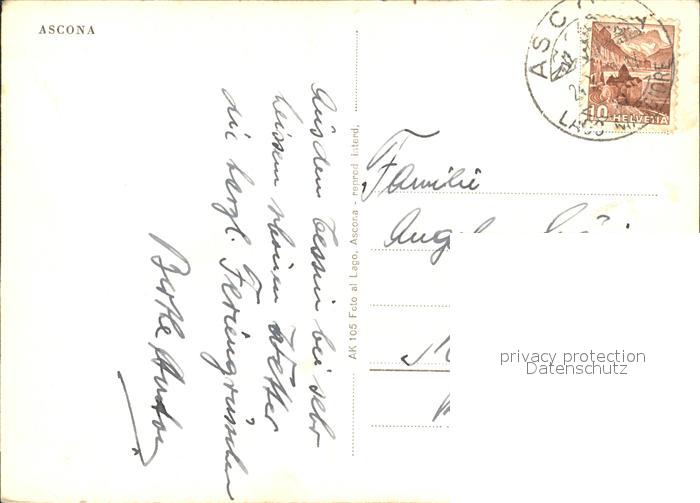 ASCONA
Aus dem Tessin bei sehr
heissem schönen Wetter
die herzl. Feriengrüsse
Berthe Anton
AK 105 Foto al Lago, Ascona - reprod. interd.
ASCONA
24
LAGO MAGGIORE
10 HELVETIA
Familie
Ang
privacy protection
Datenschutz